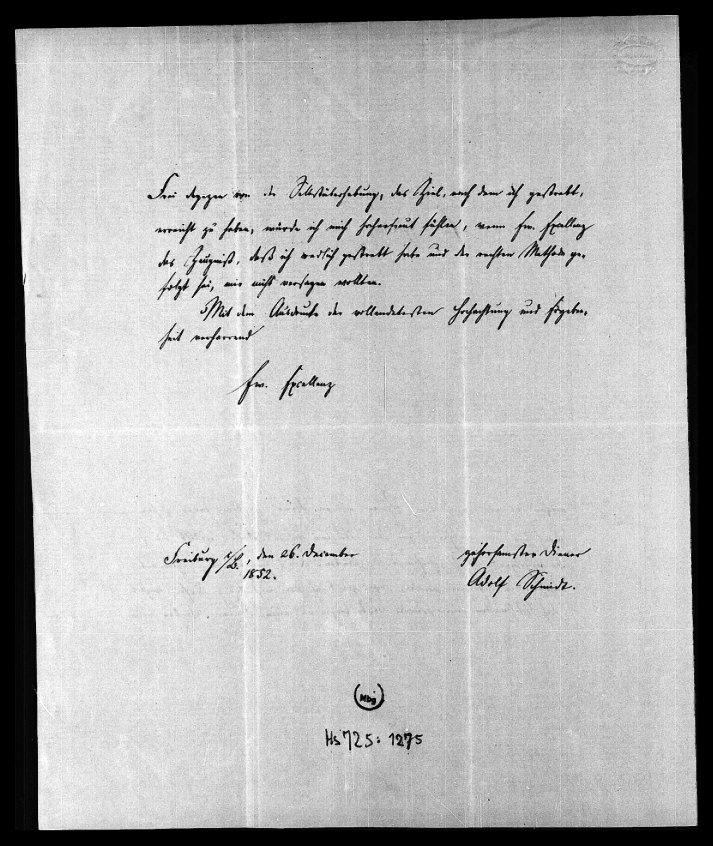 Frei dagegen von der Selbstüberhebung, das Ziel, nach dem ich gestrebt,
erreicht zu haben, würde ich mich hocherfreut fühlen, wenn Ew. Excellenz
das Zeugniß, daß ich redlich gestrebt habe und der rechten Methode ge-
folgt sei, mir nicht versagen wollten.
Mit dem Ausdrucke der vollendetesten Hochachtung und Ergeben-
heit verharrend
Ew. Excellenz
Freiburg i/B., den 26. December
1852.
gehorsamster Diener
Adolf Schmidt.
Nbg
Hs 725: 1275